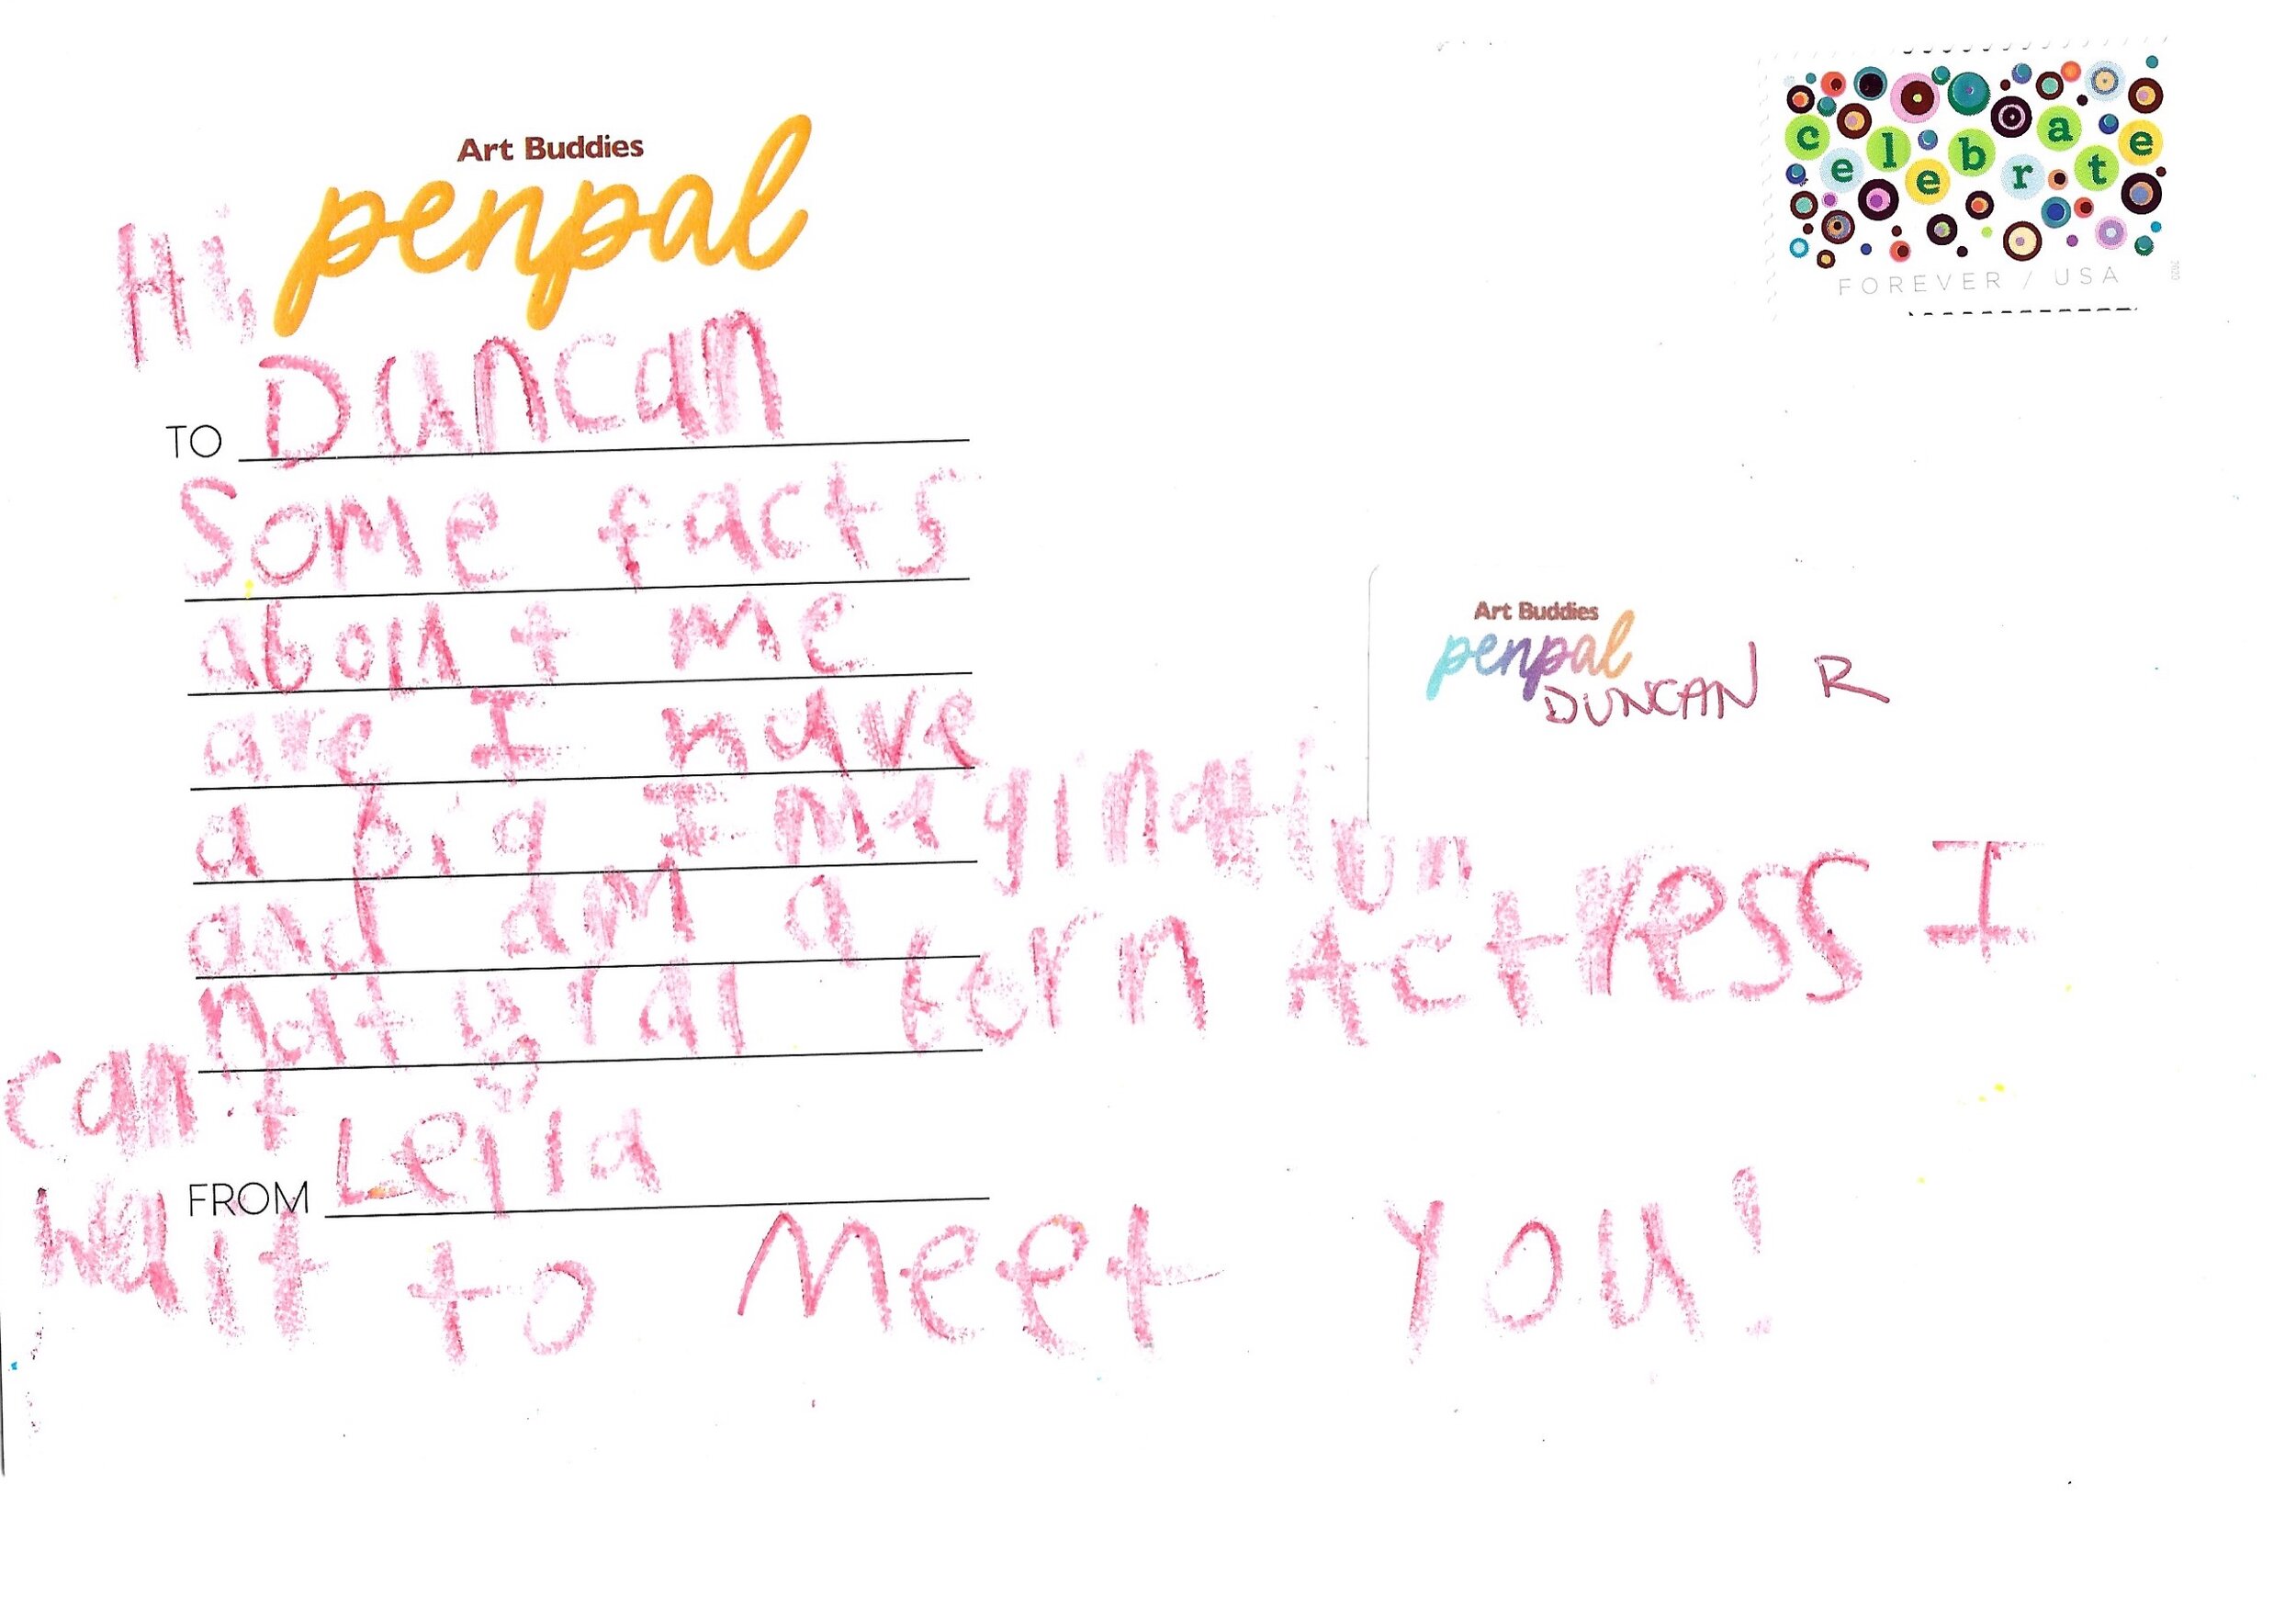 Art Buddies
penpal
Hi,
TO Duncan
Some facts
about me
are I have
a big Imagination
and am a
natural born Actress I
can't
FROM Leila
wait to Meet You!
celebrate
FOREVER / USA
2020
Art Buddies
penpal
DUNCAN R